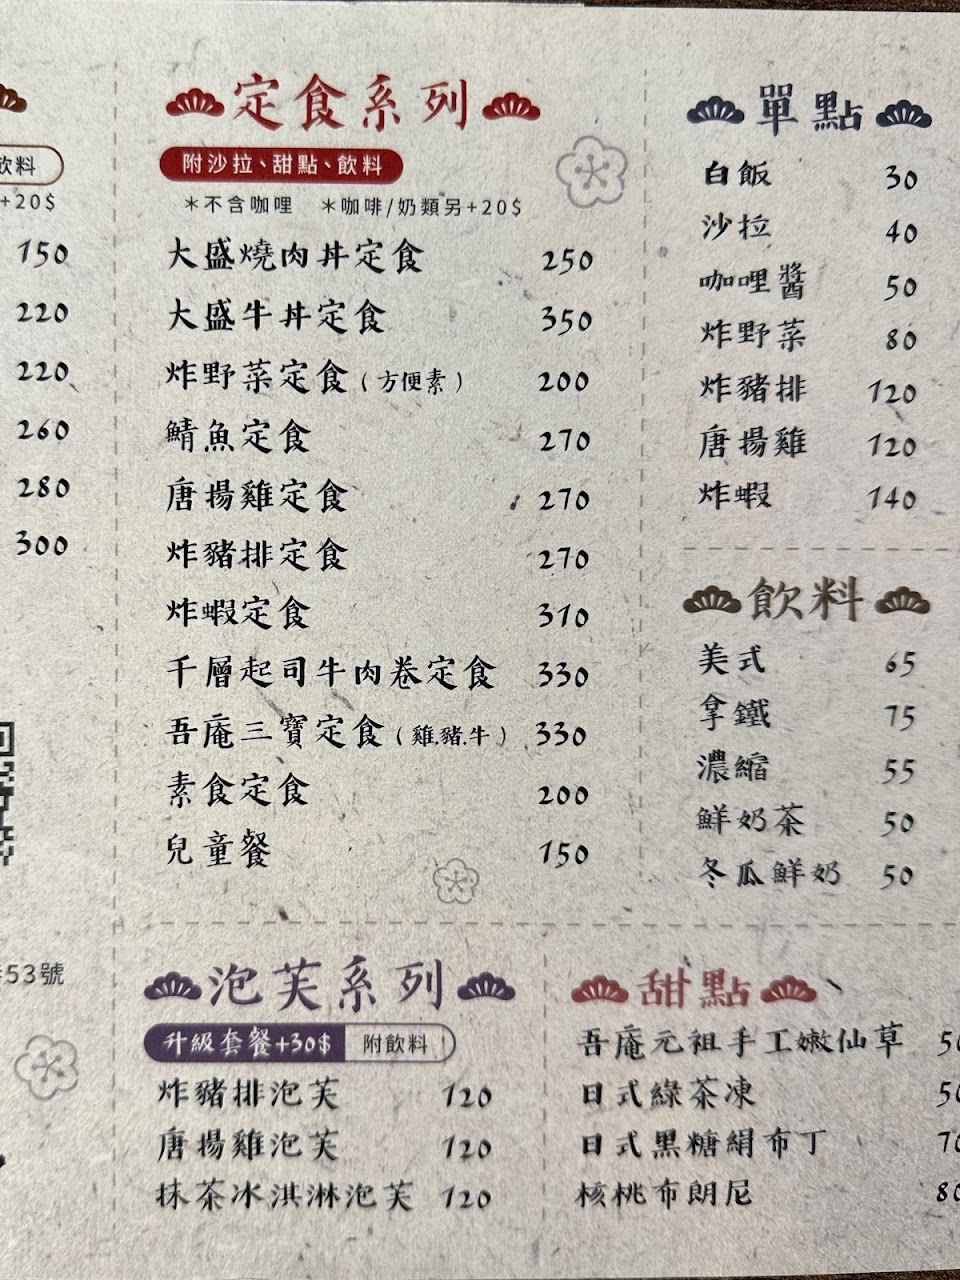 飲料
+20$
150
220
220
260
280
300
53號
定食系列
附沙拉、甜點、飲料
＊不含咖哩 ＊咖啡/奶類另+20$
大盛燒肉丼定食 250
大盛牛丼定食 350
炸野菜定食(方便素) 200
鯖魚定食 270
唐揚雞定食 270
炸豬排定食 270
炸蝦定食 310
千層起司牛肉卷定食 330
吾庵三寶定食(雞.豬.牛) 330
素食定食 200
兒童餐 150
單點
白飯 30
沙拉 40
咖哩醬 50
炸野菜 80
炸豬排 120
唐揚雞 120
炸蝦 140
飲料
美式 65
拿鐵 75
濃縮 55
鮮奶茶 50
冬瓜鮮奶 50
泡芙系列
升級套餐+30$ 附飲料
炸豬排泡芙 120
唐揚雞泡芙 120
抹茶冰淇淋泡芙 120
甜點
吾庵元祖手工嫩仙草 50
日式綠茶凍 50
日式黑糖絹布丁 70
核桃布朗尼 80